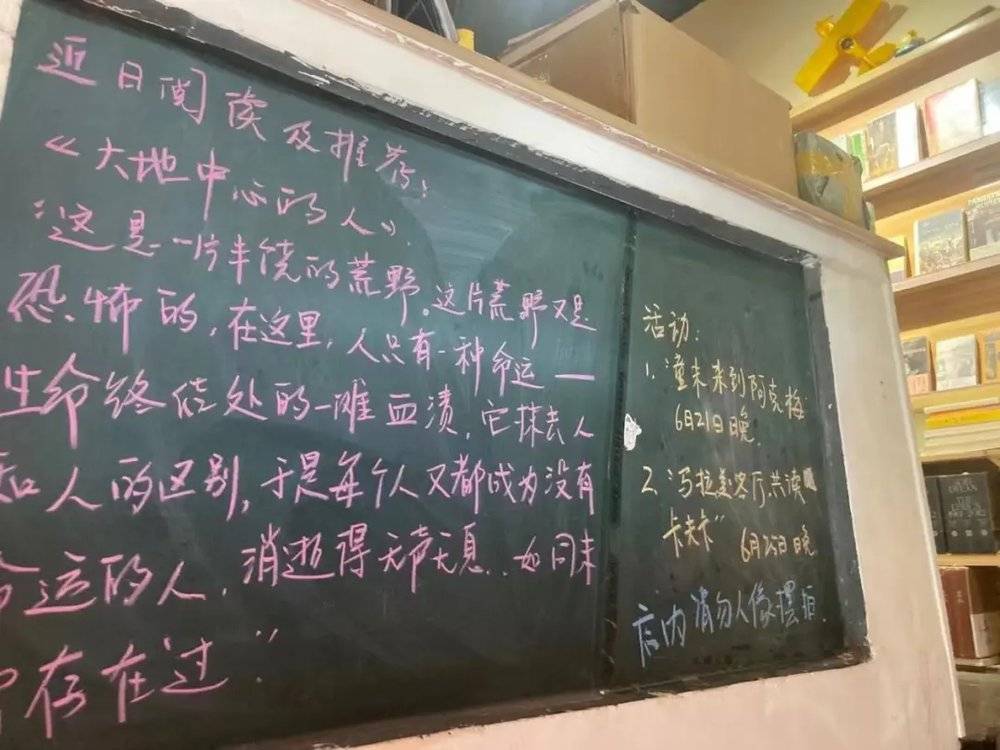 近日阅读及推荐:
《大地中心的人》.
“这是一片丰饶的荒野。这片荒野又是
恐怖的,在这里,人只有一种命运——
生命终结处的一滩血渍,它抹去人
和人的区别,于是每个人又都成为没有
命运的人,消逝得无声无息.如同未
曾存在过”
活动:
1. 童末末到阿克梅
6月21日晚.
2. 冯拉美客厅共读
卡夫卡” 6月25日晚
店内请勿人像摆拍.